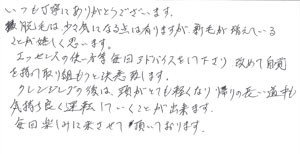 いつも丁寧にありがとうございます。
脱毛は少々気になる点は有りますが、新毛が増えている
ことが嬉しく思います。
エッセンスの使い方等毎回アドバイスをして下さり 改めて自覚
を持って取り組もうと決意致します。
クレンジングの後は、頭がとても軽くなり 帰りの長い道中も
気持ち良く運転していくことが出来ます。
毎回楽しみに来させて頂いております。